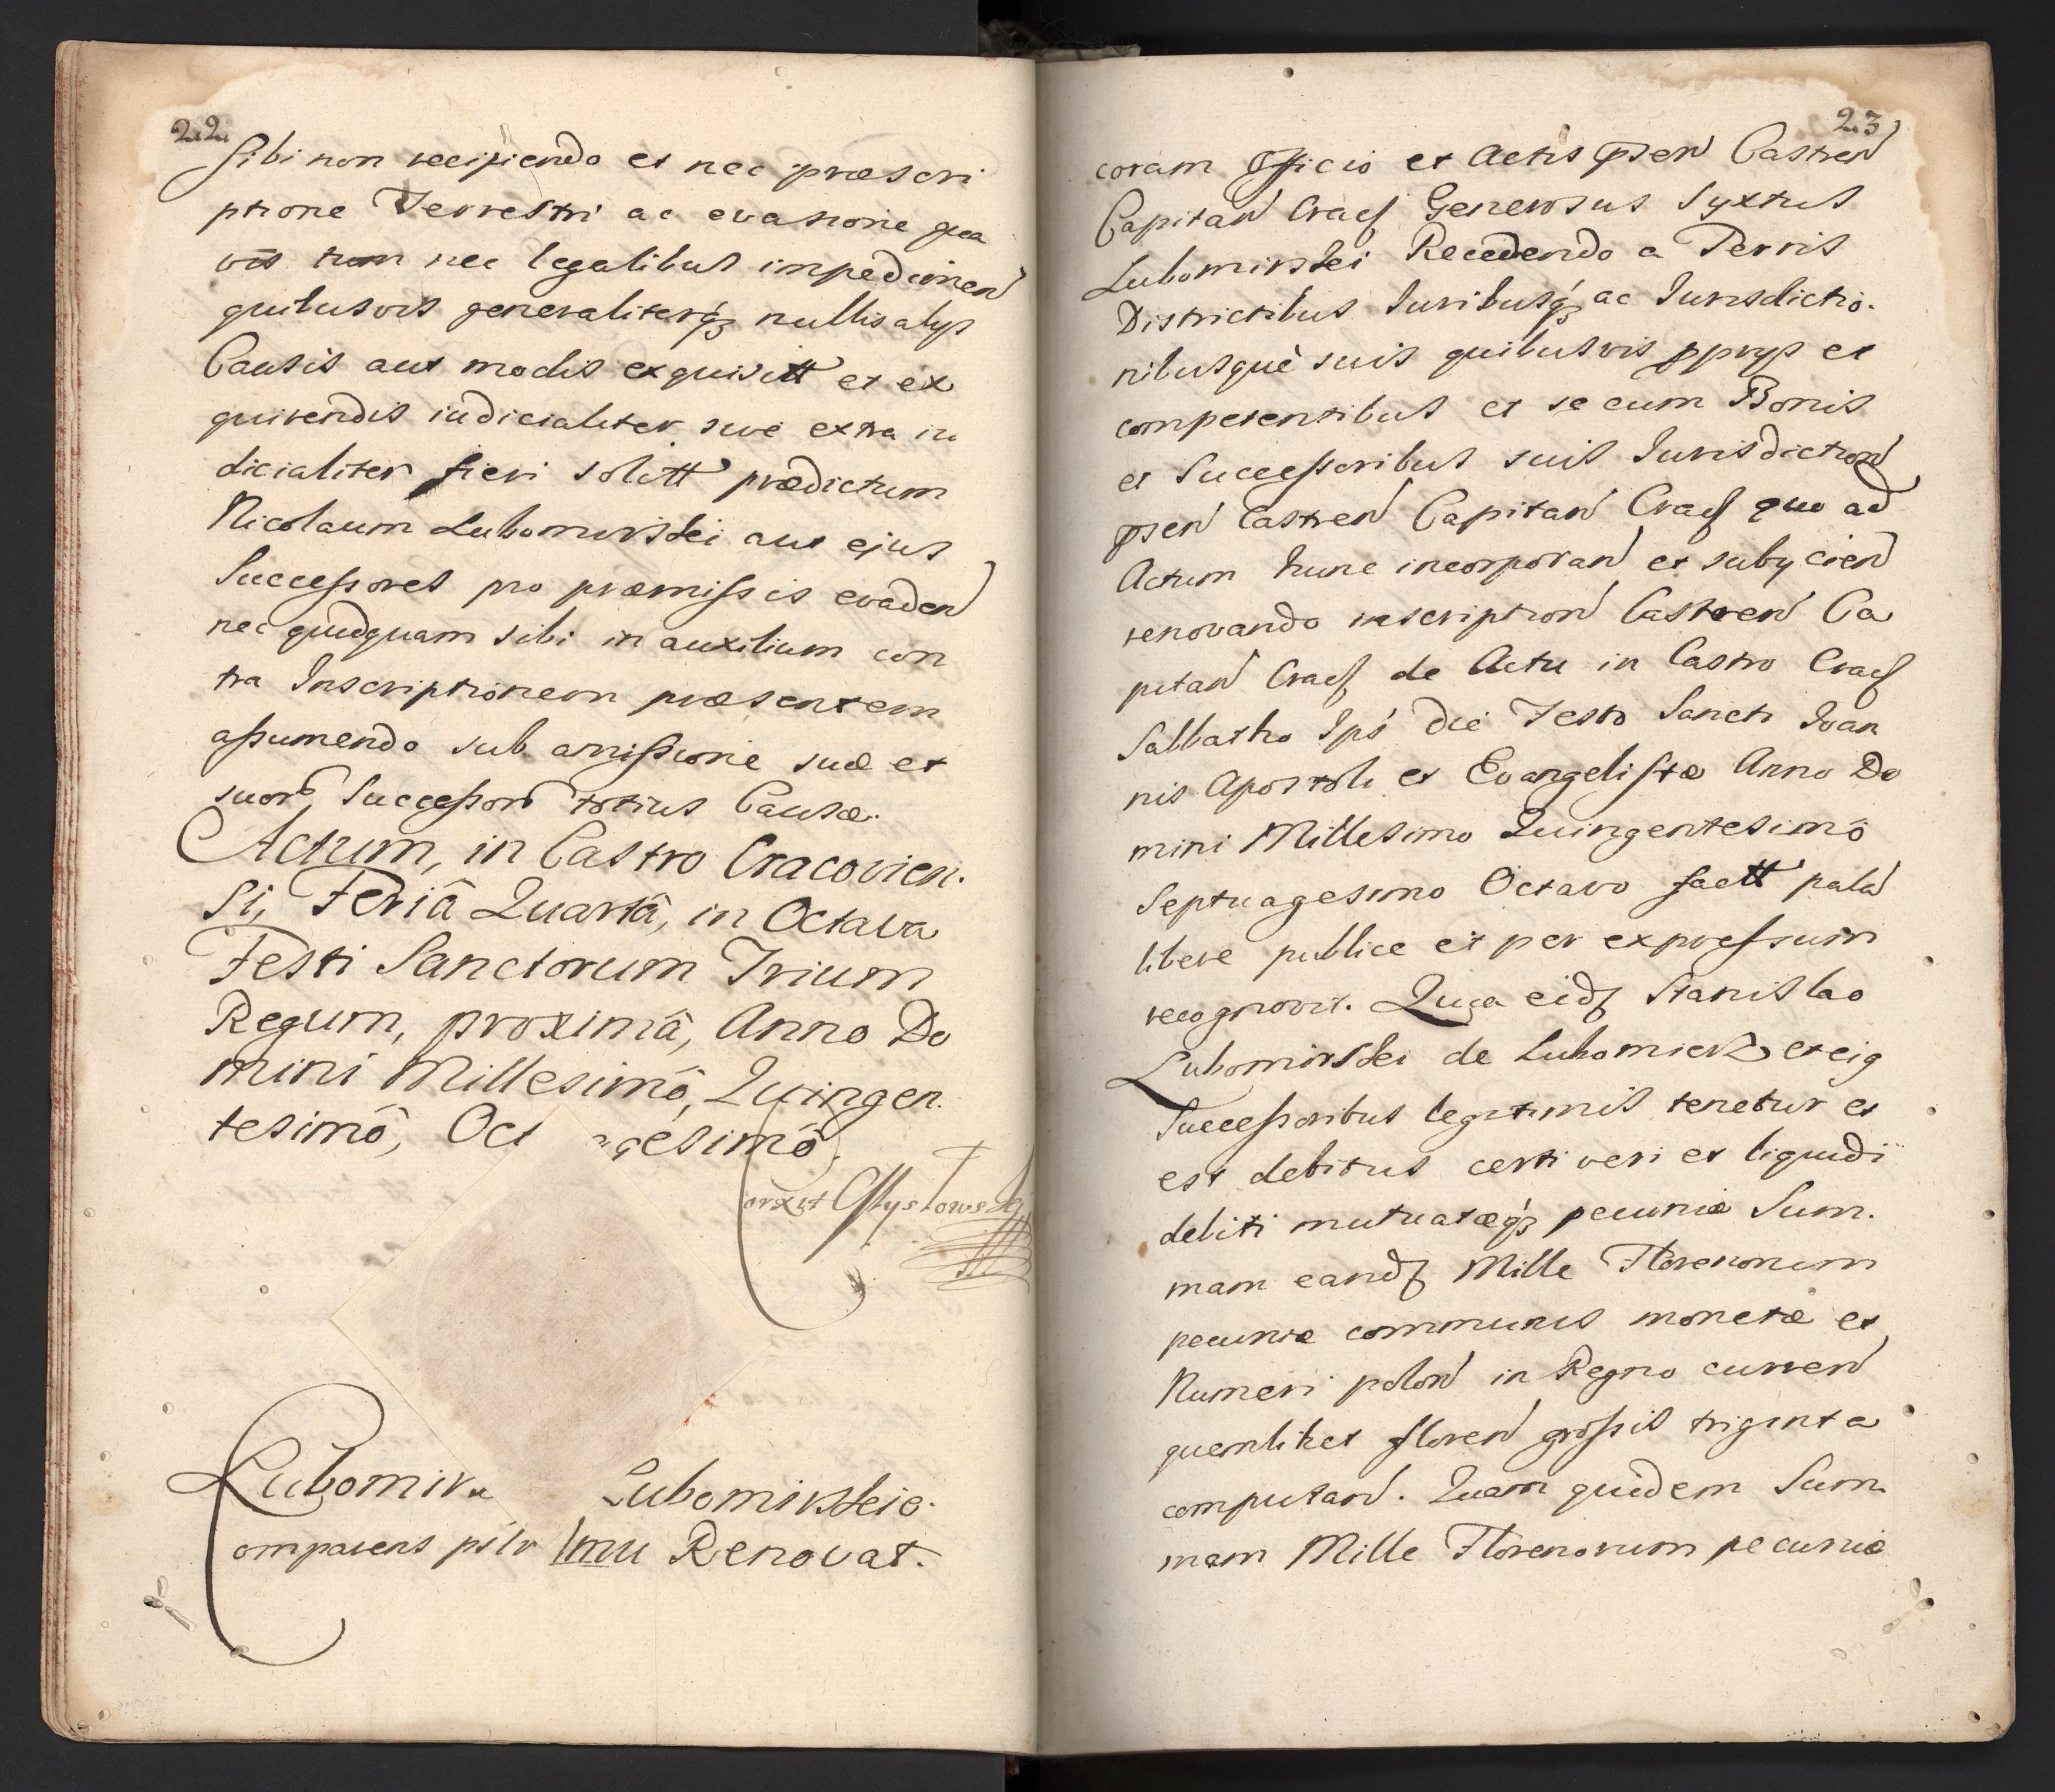 22
Sibi non recipiendo et nec præscri
ptione Terrestri ac evasione qua
vis tum nec legalibus impedimen
quibusvis generaliterq3 nullis alys
Causis aut modis exquisitt et ex
quirendis iudicialiter sive extra iu
dicialiter fieri solitt prædictum
Nicolaum Lubomirskei aut ejus
Successores pro præmissis evaden
nec quidquam sibi in auxilium con
tra Inscriptionem præsentem
assumendo sub amissione suæ et
suor Successor totius Causæ.
Actum, in Castro Cracovien.
si, Feriâ Quartâ, in Octava
Festi Sanctorum Trium
Regum, proximâ, Anno Do
mini Millesimô, Quingen.
tesimô, Oct gesimô.
Lubomir Lubomirskeie.
omparens Renovat.
23
coram Officio et Actis pñsen Castren
Capitan Cracf Generosus Syxtus
Lubomirskei Recedendo a Terris
Districtibus Iuribusq3 ac Iurisdictio.
nibusquè suis quibusvis pprys et
competentibus et se cum Bonis
et Successoribus suis Iurisdiction
pñsen Castren Capitan Cracf quo ad
Actum hunc incorporan et subycien
renovando inscription Castren Ca
pitan Cracf de Actu in Castro Cracf
Sabbatho Ips die Festo Sancti Ioan
nis Apostoli et Evangelistæ Anno Do
mini Millesimo Quingentesimô
Septuagesimo Octavo factt palã
libere publice et per expressum
recognovit. Quia eid3 Stanislao
Lubomirskei de Lubomierz et eig
Successoribus legitimis tenetur et
est debitus certi veri et liquidi
debiti mutuatæq3 pecuniæ Sum.
mam eand3 Mille Florenorum
pecuniæ communis monetæ et
Numeri polon in Regno curren
quemlibet floren grossis triginta
computan. Quam quidem Sum
mam Mille Florenorum pecuniæ